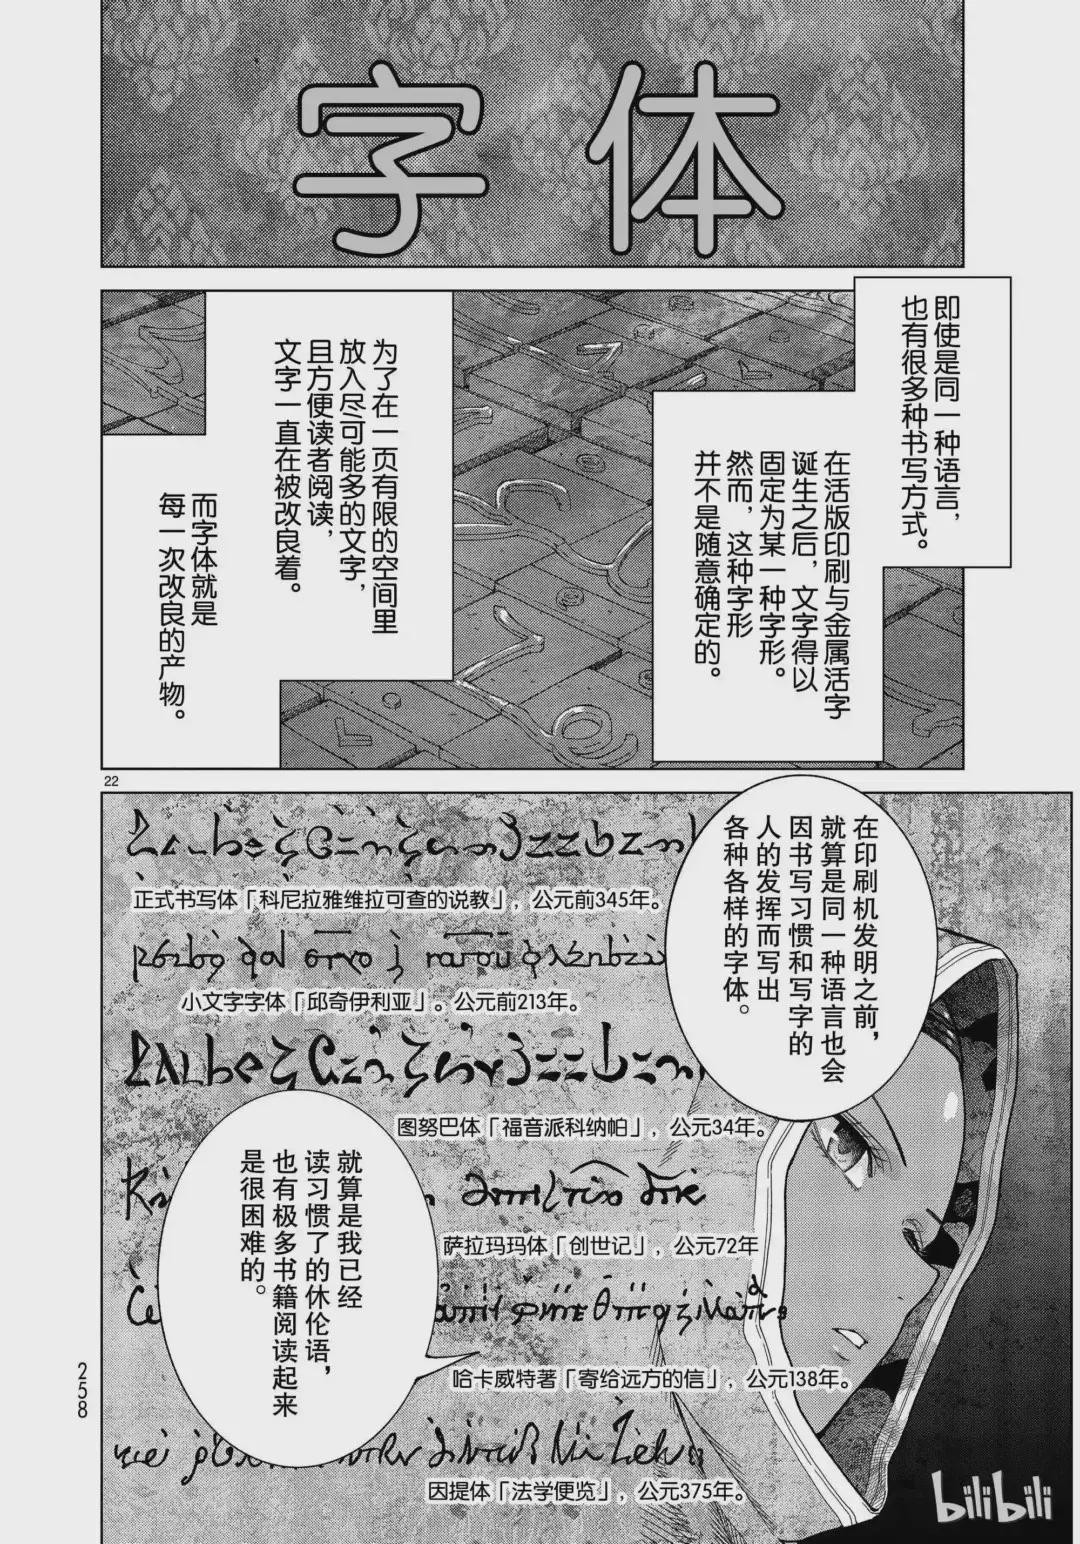 字体
即使是同一种语言，
也有很多种书写方式。
在活版印刷与金属活字
诞生之后，文字得以
固定为某一种字形。
然而，这种字形
并不是随意确定的。
为了在一页有限的空间里
放入尽可能多的文字，
且方便读者阅读，
文字一直在被改良着。
而字体就是
每一次改良的产物。
22
在印刷机发明之前，
就算是同一种语言也会
因书写习惯和写字的
人的发挥而写出
各种各样的字体。
正式书写体「科尼拉雅维拉可查的说教」，公元前345年。
小文字字体「邱奇伊利亚」。公元前213年。
图努巴体「福音派科纳帕」，公元34年。
萨拉玛玛体「创世记」，公元72年
哈卡威特著「寄给远方的信」，公元138年。
因提体「法学便览」，公元375年。
就算是我已经
读习惯了的休伦语，
也有极多书籍阅读起来
是很困难的。
258
bilibili